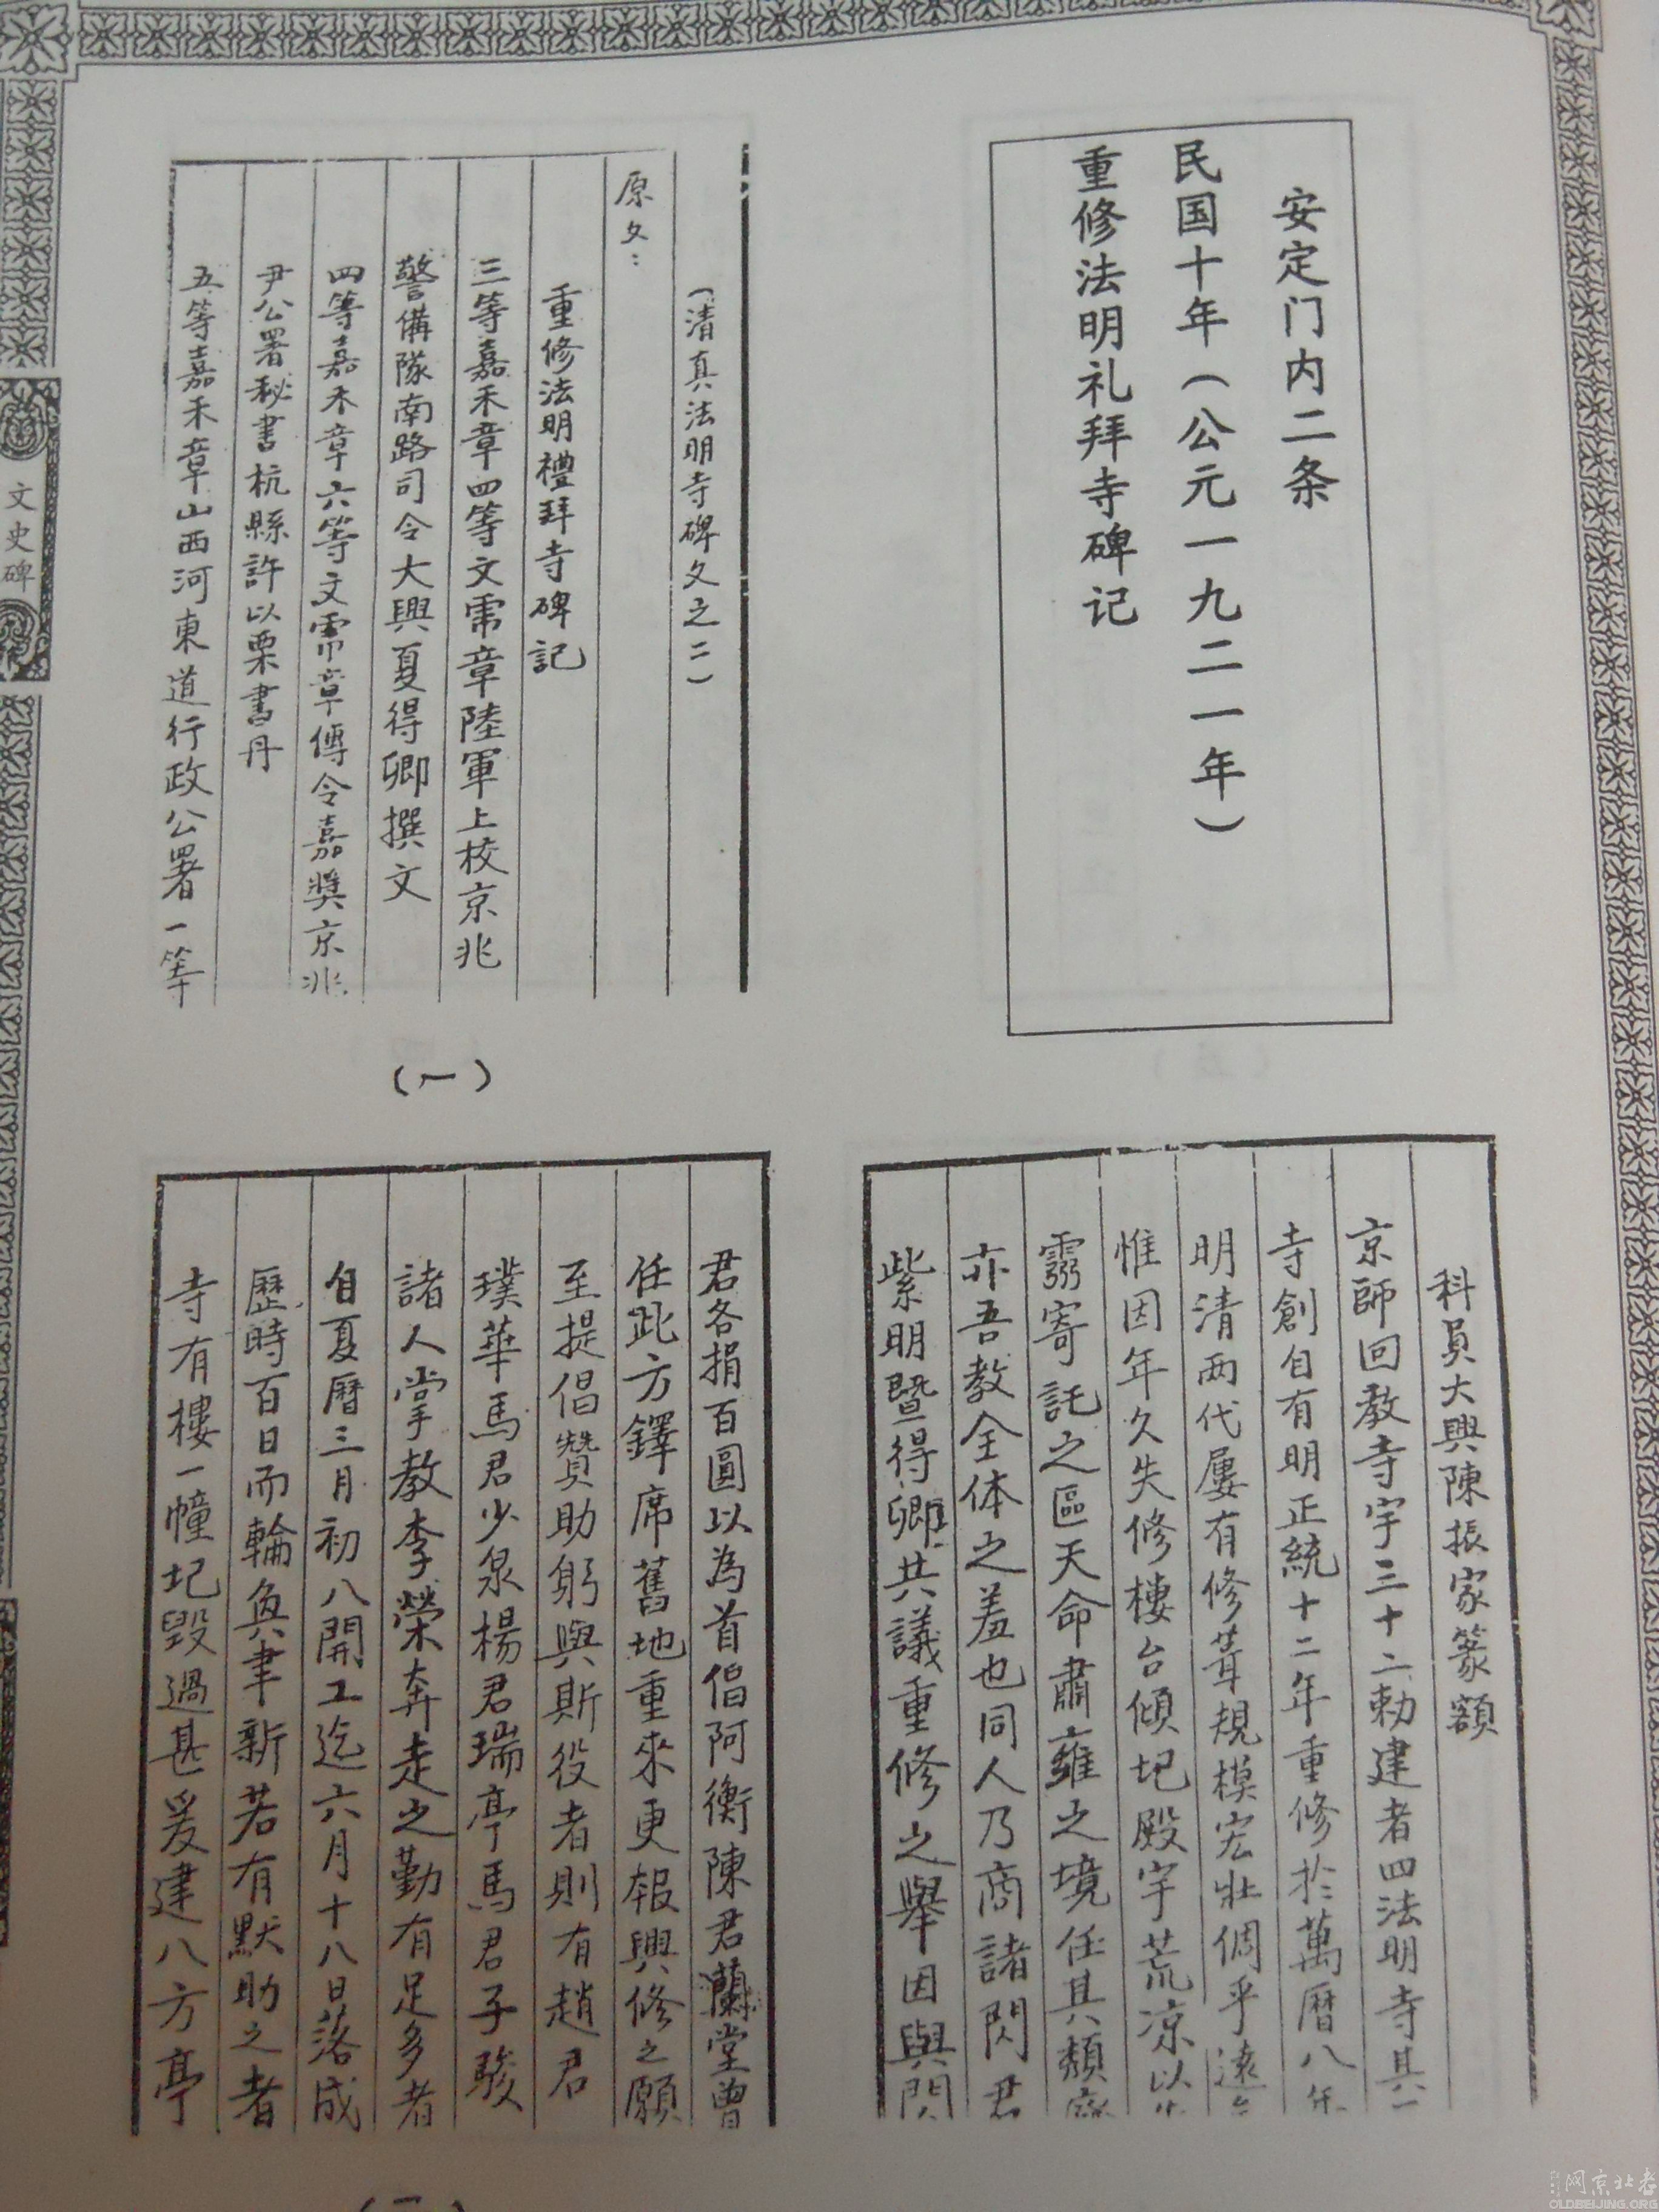 安定门内二条
民国十年（公元一九二一年）
重修法明礼拜寺碑记
（清真法明寺碑文之二）
原文：
重修法明禮拜寺碑記
三等嘉禾章四等文虎章陸軍上校京兆
警備隊南路司令大興夏得卿撰文
四等嘉禾章六等文虎章傳令嘉獎京兆
尹公署秘書杭縣許以栗書丹
五等嘉禾章山西河東道行政公署一等
（一）
科員大興陳振家篆額
京師回教寺宇三十二勅建者四法明寺其一
寺創自有明正統十二年重修於萬曆八年
明清两代屢有修葺規模宏壯倜乎遠
惟因年久失修樓台傾圮殿宇荒凉以
寄託之區天命肅雍之境任其頽
亦吾教全体之羞也同人乃商諸閃君
紫明暨得卿共議重修之舉因與閃
君各捐百圓以為首倡阿衡陳君蘭堂曾
任此方鐸席舊地重來更報興修之願
至提倡贊助躬與斯役者則有趙君
璞華馬君少泉楊君瑞亭馬君子駿
諸人掌教李榮奔走之勤有足多者
自夏曆三月初八開工迄六月十八日落成
歷時百日而輪奐聿新若有默助之者
寺有樓一幢圮毀過甚爰建八方亭
文史碑
老北京网
OLDBEIJING.ORG